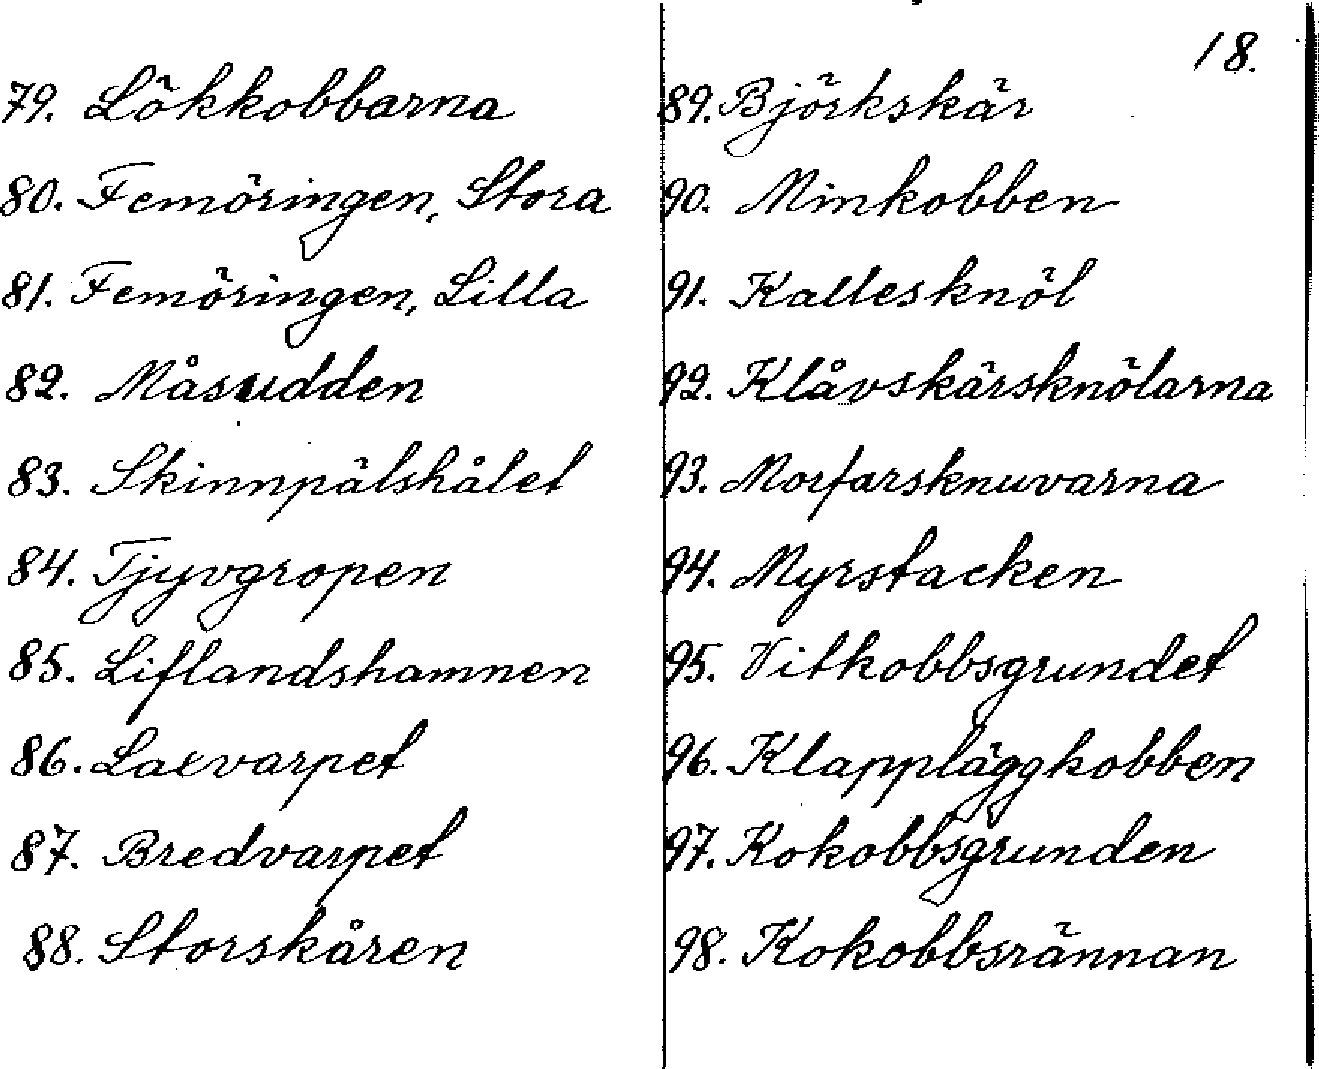 18.
79. Lökkobbarna
80. Femöringen, Stora
81. Femöringen, Lilla
82. Måsudden
83. Skinnpälshålet
84. Tjyvgropen
85. Liflandshamnen
86. Laxvarpet
87. Bredvarpet
88. Storskären
89. Björkskär
90. Minkobben
91. Kallesknöl
92. Klåvskärsknölarna
93. Morfarsknuvarna
94. Myrstacken
95. Vitkobbsgrundet
96. Klappläggkobben
97. Kokobbsgrunden
98. Kokobbsrännan